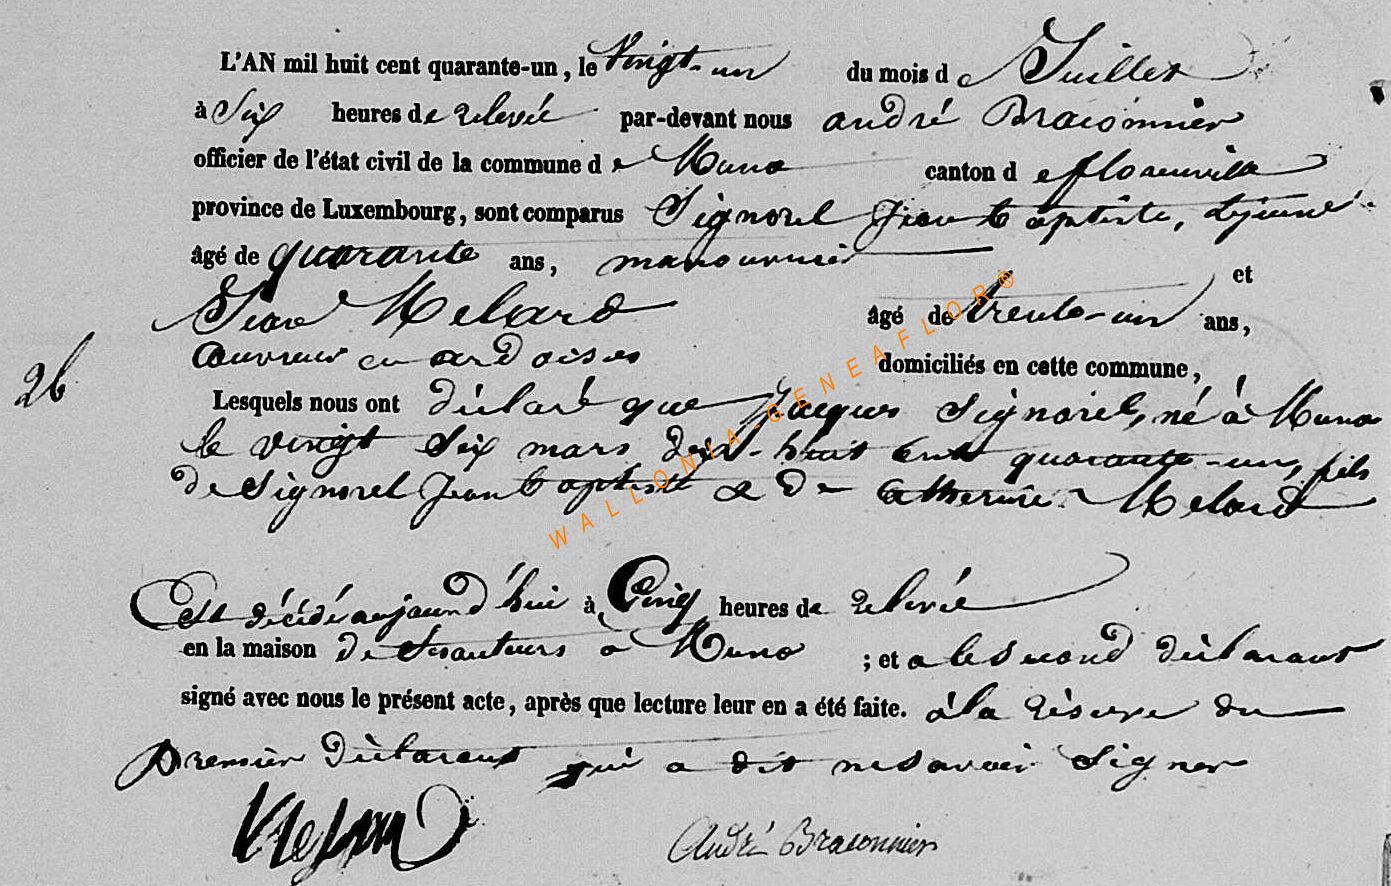 L'AN mil huit cent quarante-un, le Vingt-un du mois de Juillet
à Six heures de relevée par-devant nous andré Braconnier
officier de l'état civil de la commune de Muno canton de florenville
province de Luxembourg, sont comparus Signorel Jean baptiste, lejeune
âgé de quarante ans, manouvrier et
Jean Melard âgé de trente-un ans,
Couvreur en ardoises domiciliés en cette commune,
26
Lesquels nous ont déclaré que Jacques Signorel, né à Muno
le vingt Six mars huit Cent quarante-un, fils
de Signorel Jean baptiste & de Catherine Melard
WALLONIA-GENEAFLOR®
Est décédé aujourd'hui à Cinq heures de relevée
en la maison de à Muno ; et a le second déclarant
signé avec nous le présent acte, après que lecture leur en a été faite. à la réserve du
premier déclarant qui a dit ne savoir Signer
Melard
André Braconnier